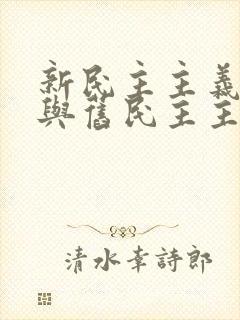 新民主主義
與舊民主主
清水幸詩郎